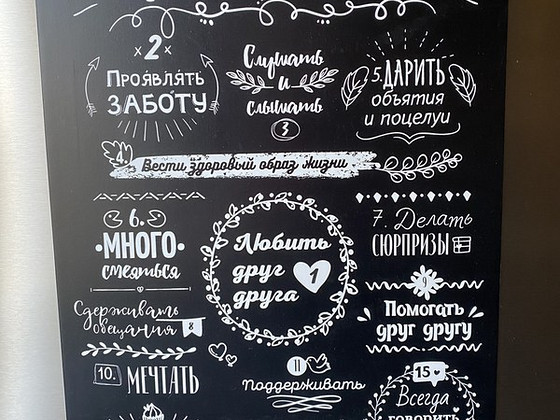 2
Проявлять
ЗАБОТУ
Слушать
и
слышать
3
5. ДАРИТЬ
объятия
и поцелуи
4.
Вести здоровый образ жизни
6.
МНОГО
смеяться
Любить
друг
друга
1
7. Делать
СЮРПРИЗЫ
Сдерживать
обещания
8
9
Помогать
друг другу
10. МЕЧТАТЬ
11
Поддерживать
15
Всегда
говорить